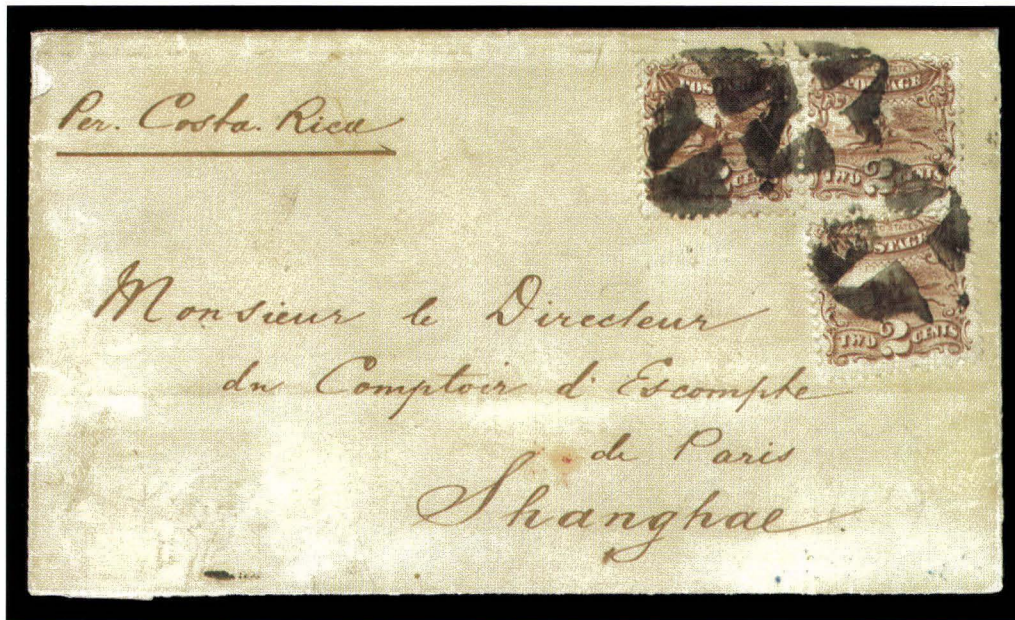 Per. Costa. Rica
POSTAGE
CENTS
POSTAGE
TWO 2 CENTS
POSTAGE
TWO 2 CENTS
Monsieur le Directeur
du Comptoir d'Escompte
de Paris
Shanghae